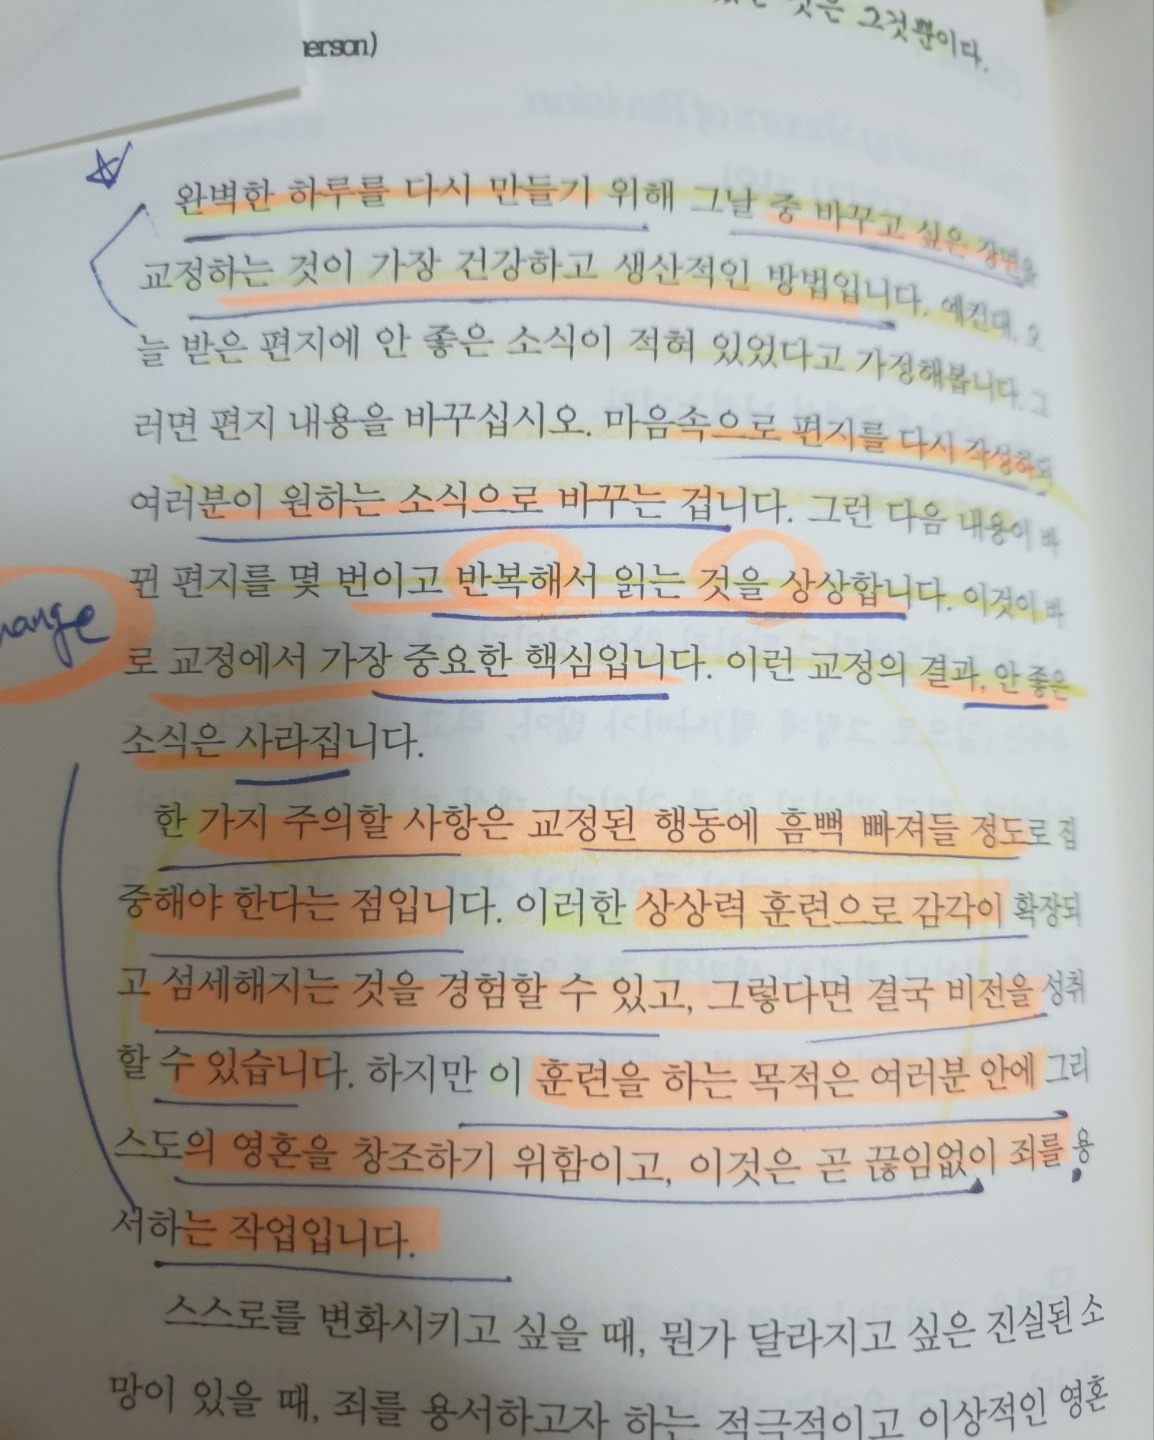 것은 그것뿐이다.
erson)
완벽한 하루를 다시 만들기 위해 그날 중 바꾸고 싶은 장면을
교정하는 것이 가장 건강하고 생산적인 방법입니다. 예컨대, 오
늘 받은 편지에 안 좋은 소식이 적혀 있었다고 가정해봅니다. 그
러면 편지 내용을 바꾸십시오. 마음속으로 편지를 다시 작성하되
여러분이 원하는 소식으로 바꾸는 겁니다. 그런 다음 내용이 바
뀐 편지를 몇 번이고 반복해서 읽는 것을 상상합니다. 이것이 바
ange
로 교정에서 가장 중요한 핵심입니다. 이런 교정의 결과, 안 좋은
소식은 사라집니다.
한 가지 주의할 사항은 교정된 행동에 흠뻑 빠져들 정도로 집
중해야 한다는 점입니다. 이러한 상상력 훈련으로 감각이 확장되
고 섬세해지는 것을 경험할 수 있고, 그렇다면 결국 비전을 성취
할 수 있습니다. 하지만 이 훈련을 하는 목적은 여러분 안에 그리
스도의 영혼을 창조하기 위함이고, 이것은 곧 끊임없이 죄를 용
서하는 작업입니다.
스스로를 변화시키고 싶을 때, 뭔가 달라지고 싶은 진실된 소
망이 있을 때, 죄를 용서하고자 하는 적극적이고 이상적인 영혼